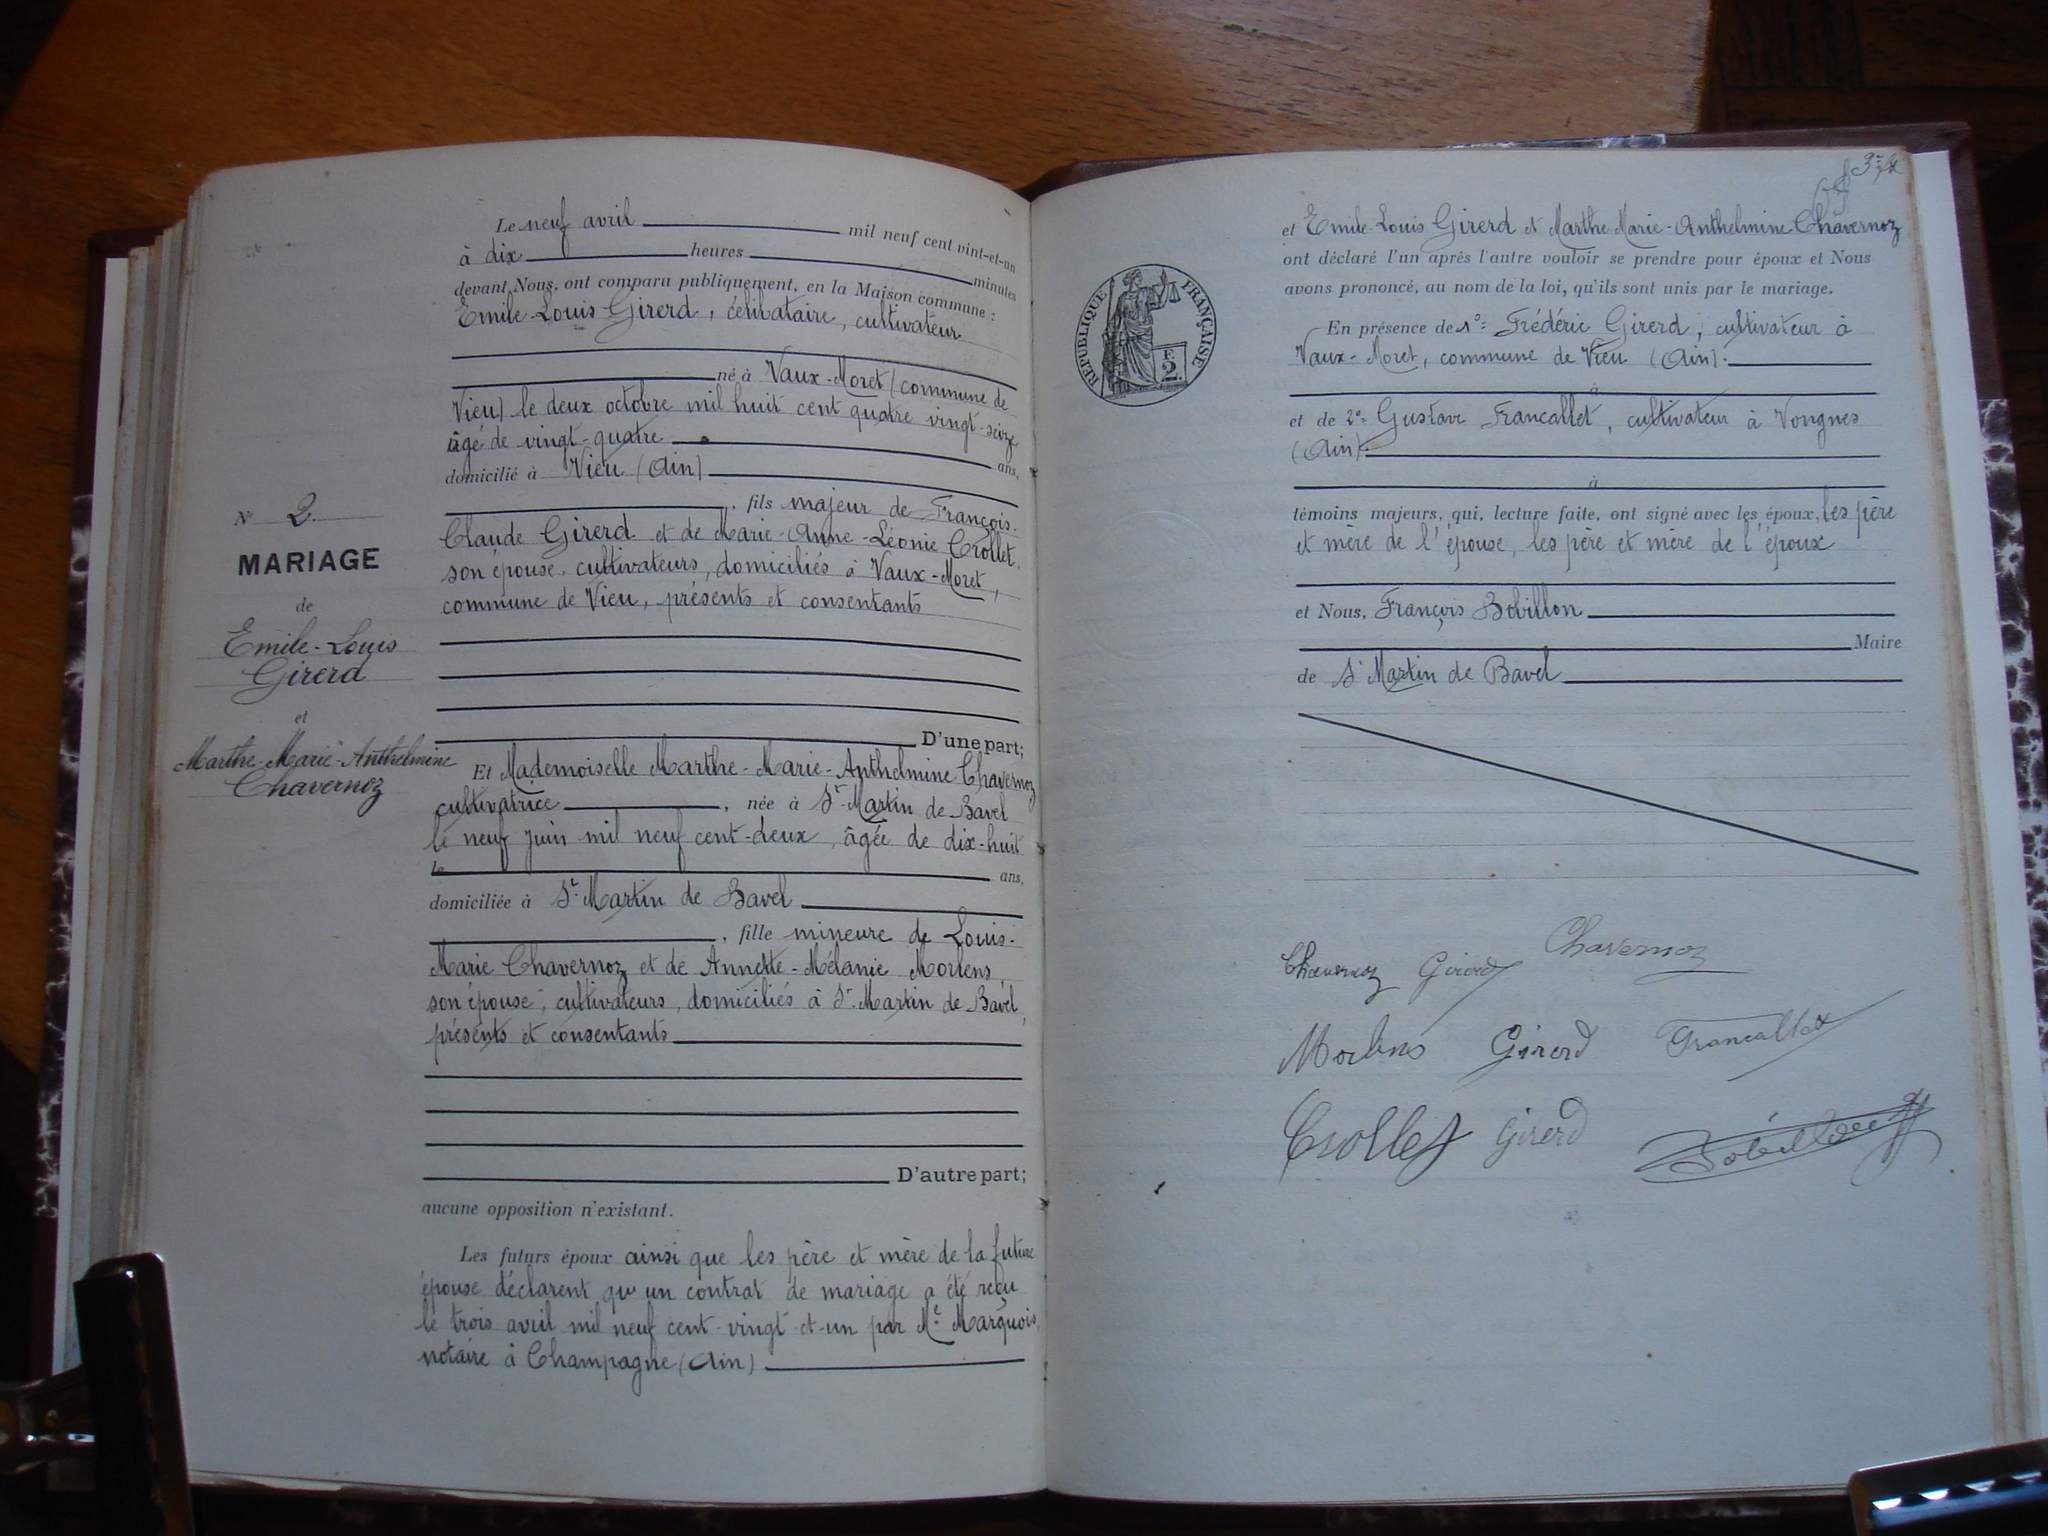 N° 2.
MARIAGE
de
Emile-Louis
Girerd
et
Marthe-Marie-Anthelmine
Chavernoz
Le neuf avril mil neuf cent vint-et-un
à dix heures minutes
devant Nous, ont comparu publiquement, en la Maison commune :
Emile-Louis Girerd, célibataire, cultivateur
né à Vaux-Moret (commune de
Vieu) le deux octobre mil huit cent quatre vingt-seize
âgé de vingt-quatre ans,
domicilié à Vieu (Ain)
, fils majeur de François-
Claude Girerd et de Marie-Anne-Léonie Crollet
son épouse, cultivateurs, domiciliés à Vaux-Moret,
commune de Vieu, présents et consentants
D'une part;
Et Mademoiselle Marthe-Marie-Anthelmine Chavernoz
cultivatrice , née à St-Martin de Bavel
le neuf juin mil neuf cent-deux, âgée de dix-huit
le ans,
domiciliée à St-Martin de Bavel
, fille mineure de Louis-
Marie Chavernoz et de Annette-Mélanie Morlens
son épouse, cultivateurs, domiciliés à St-Martin de Bavel,
présents et consentants
D'autre part;
aucune opposition n'existant.
Les futurs époux ainsi que les père et mère de la future
épouse déclarent qu'un contrat de mariage a été reçu
le trois avril mil neuf cent-vingt-et-un par Me Marquois,
notaire à Champagne (Ain)
REPUBLIQUE FRANÇAISE
F.
2.
et Emile-Louis Girerd et Marthe-Marie-Anthelmine Chavernoz
ont déclaré l'un après l'autre vouloir se prendre pour époux et Nous
avons prononcé, au nom de la loi, qu'ils sont unis par le mariage.
En présence de 1° Frédéric Girerd, cultivateur à
Vaux-Moret, commune de Vieu (Ain).
à
et de 2° Gustave Francallet, cultivateur à Vongnes
(Ain).
à
témoins majeurs, qui, lecture faite, ont signé avec les époux, les père
et mère de l'épouse, les père et mère de l'époux
et Nous, François Bobillon
Maire
de St Martin de Bavel
Chavernoz Girerd Chavernoz
Morlens Girerd Francallet
Crollet Girerd Bobillon